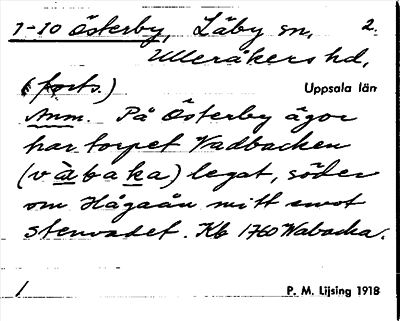 1-10 Österby, Läby sn, 2.
Ulleråkers hd,
(forts.) Uppsala län
Anm. På Österby ägor
har torpet Vadbacken
(vàbaka) legat, söder
om Hågaån mitt emot
stenvadet. Kb 1760 Wabacka.
1 P. M. Lijsing 1918